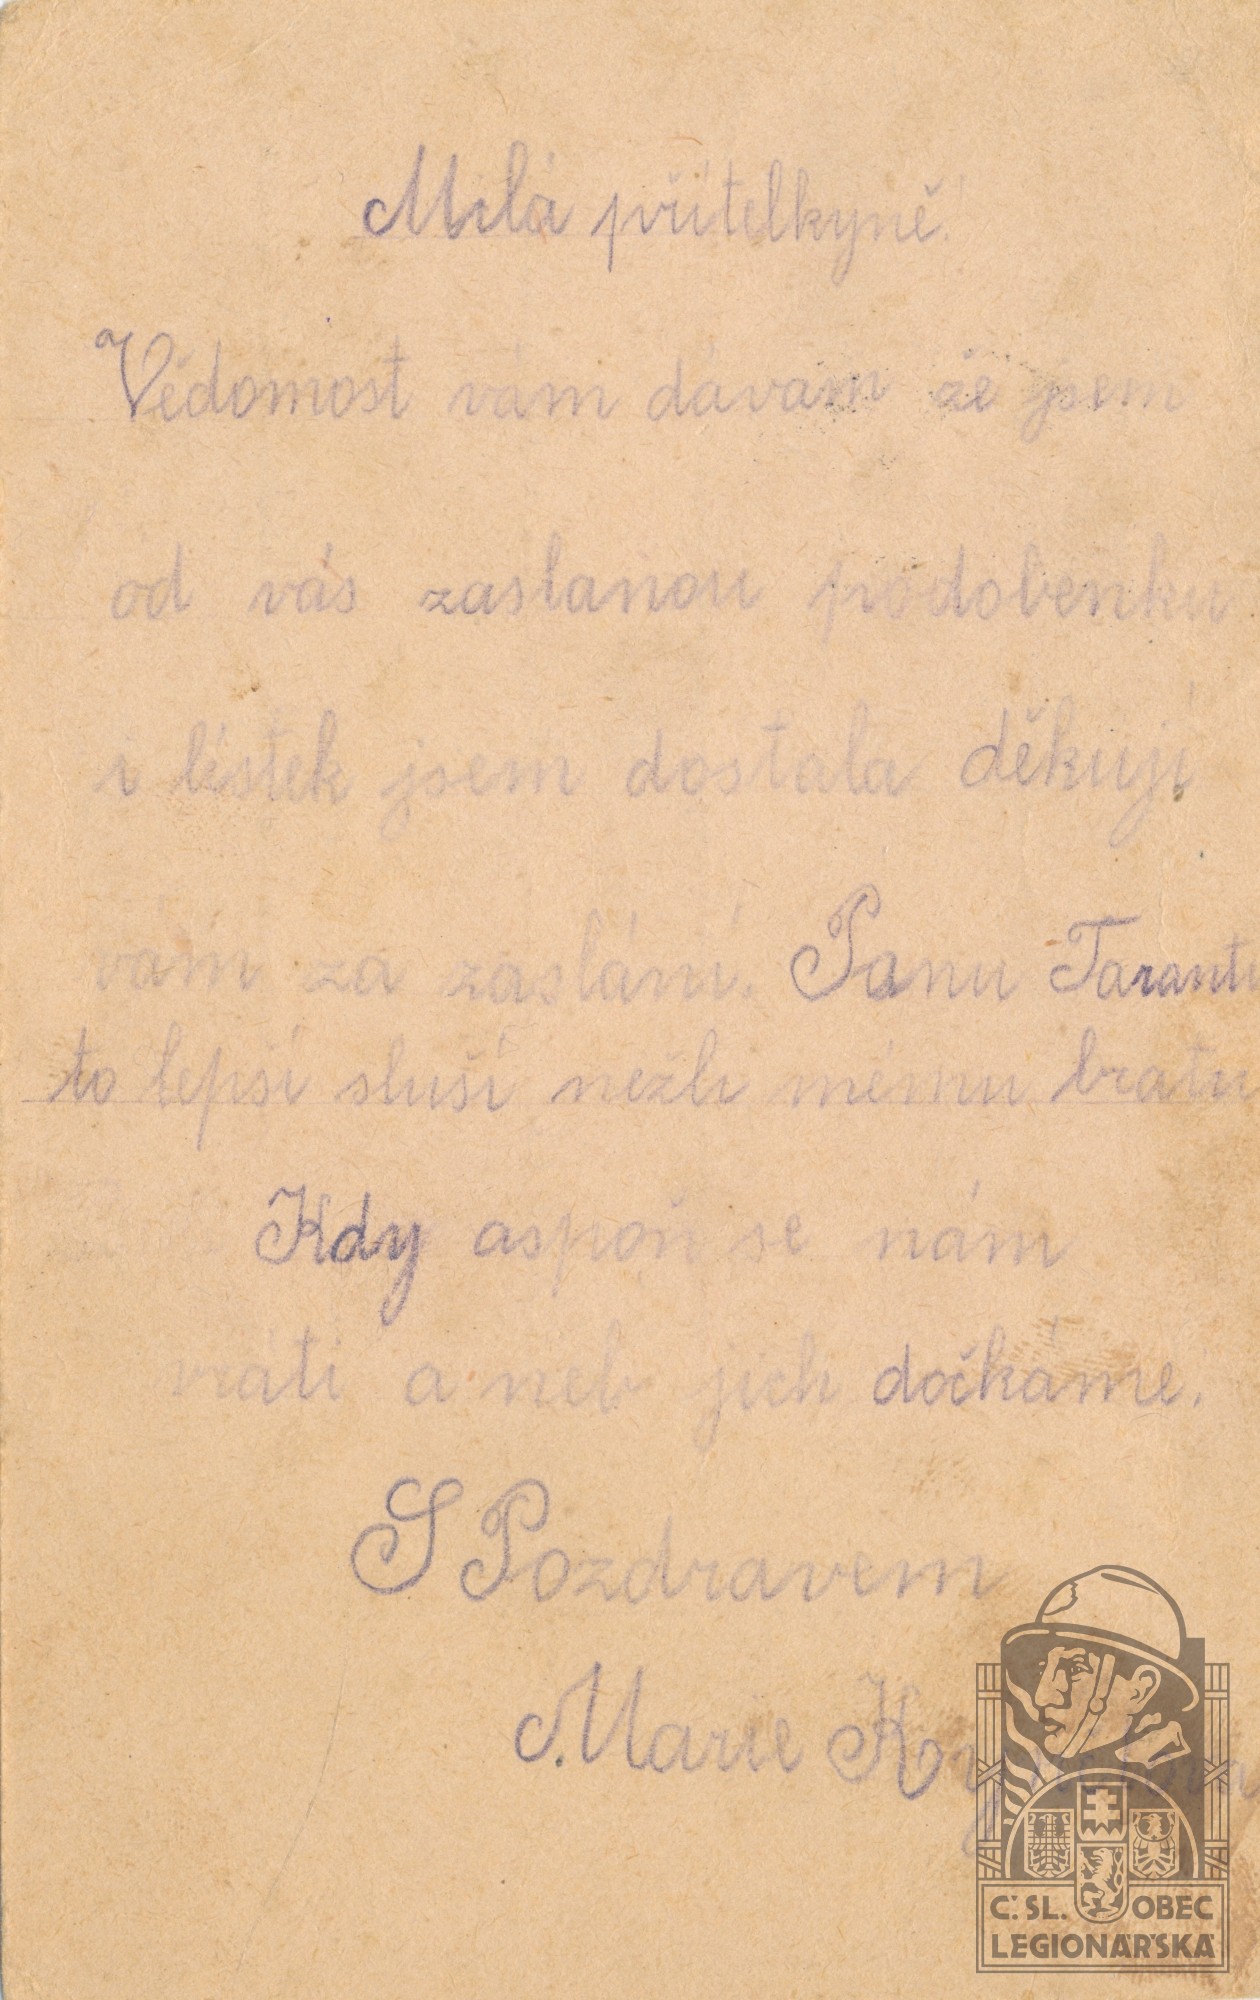 Milá přítelkyně!
Vědomost vám dávám že jsem
od vás zaslanou podobenku
i lístek jsem dostala děkuji
vám za zaslání. Panu Tarantu
to lepší sluší nežli mému bratu
Kdy aspoň se nám
vrátí a neb jich dočkáme.
S Pozdravem
Marie
Č. SL. OBEC
LEGIONÁŘSKÁ